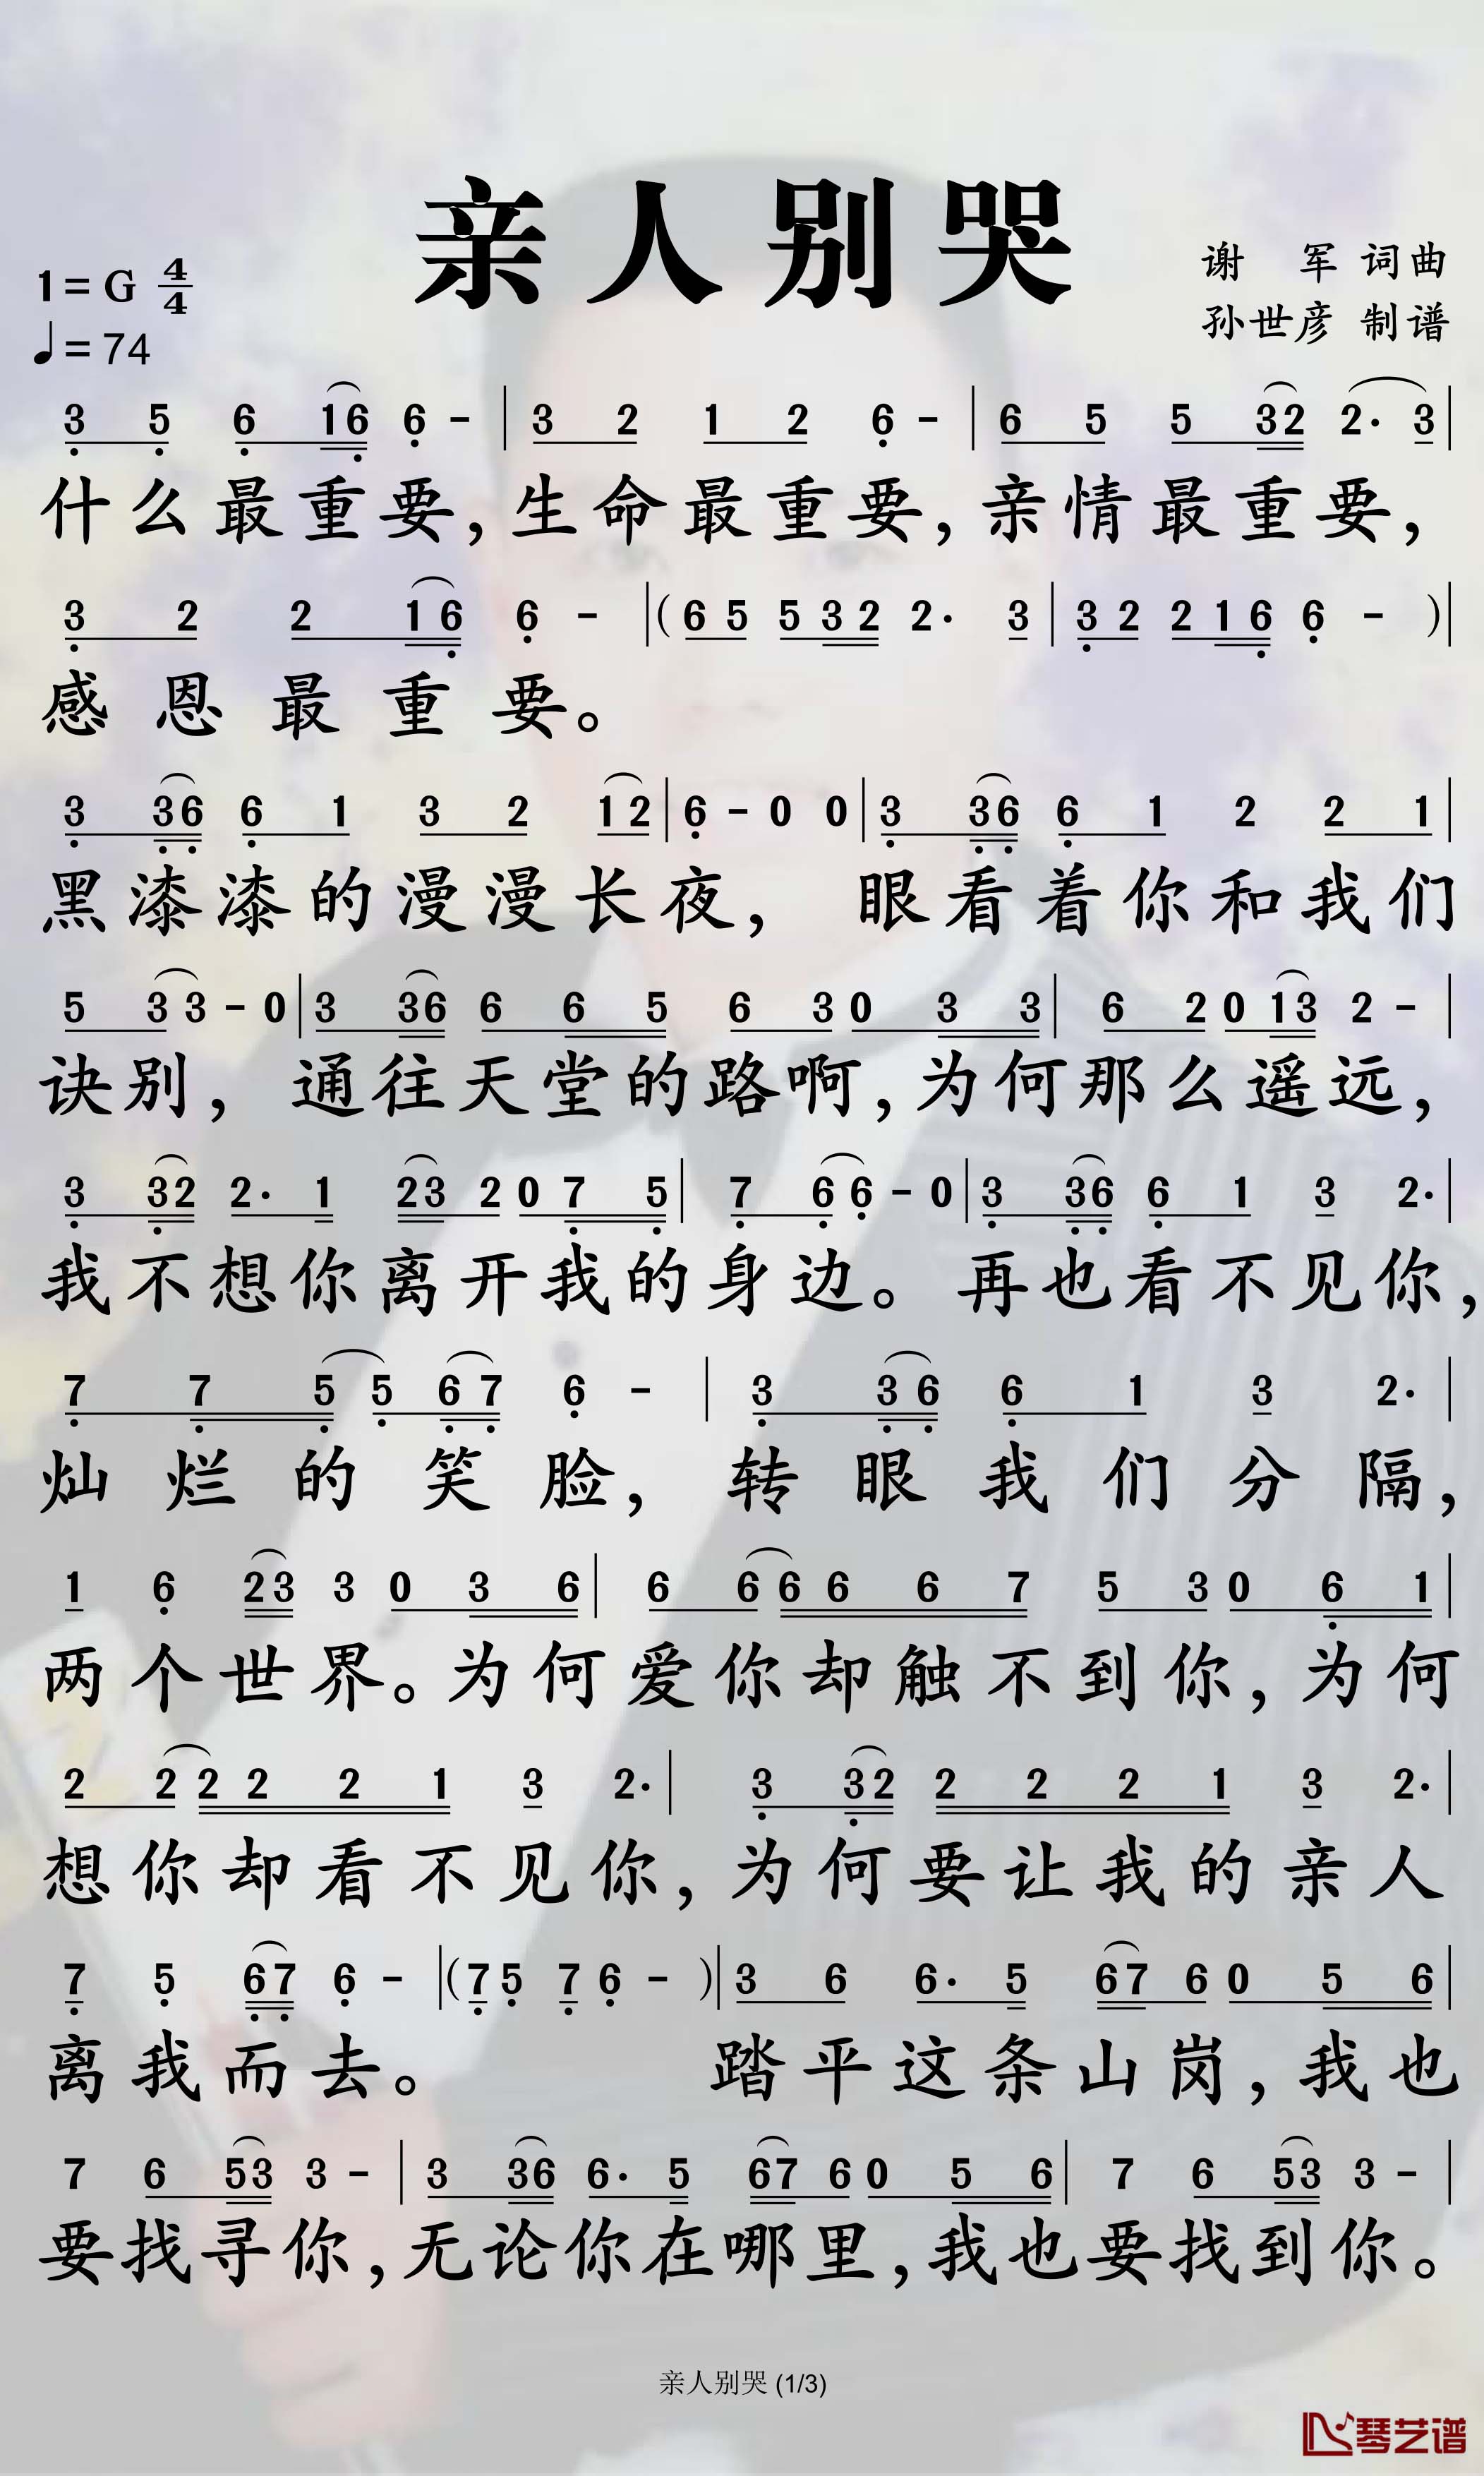 亲人别哭
1=G 4/4
♩=74
谢 军 词曲
孙世彦 制谱
3 5 6 16 6 - | 3 2 1 2 6 - | 6 5 5 32 2· 3 |
什么最重要,生命最重要,亲情最重要,
3 2 2 16 6 - |( 6 5 5 3 2 2· 3 | 3 2 2 1 6 6 - )|
感恩最重要。
3 36 6 1 3 2 12 | 6 - 0 0 | 3 36 6 1 2 2 1 |
黑漆漆的漫漫长夜, 眼看着你和我们
5 3 3 - 0 | 3 36 6 6 5 6 3 0 3 3 | 6 2 0 13 2 - |
诀别, 通往天堂的路啊,为何那么遥远,
3 32 2· 1 23 2 0 7 5 | 7 6 6 - 0 | 3 36 6 1 3 2· |
我不想你离开我的身边。再也看不见你,
7 7 5 5 6 7 6 - | 3 3 6 6 1 3 2· |
灿烂的笑脸, 转眼我们分隔,
1 6 23 3 0 3 6 | 6 6 6 6 6 7 5 3 0 6 1 |
两个世界。为何爱你却触不到你,为何
2 2 2 2 2 1 3 2· | 3 32 2 2 2 1 3 2· |
想你却看不见你,为何要让我的亲人
7 5 67 6 - |( 7 5 7 6 - )| 3 6 6· 5 67 6 0 5 6 |
离我而去。 踏平这条山岗,我也
7 6 53 3 - | 3 36 6· 5 67 6 0 5 6 | 7 6 53 3 - |
要找寻你,无论你在哪里,我也要找到你。
亲人别哭 (1/3)
琴艺谱